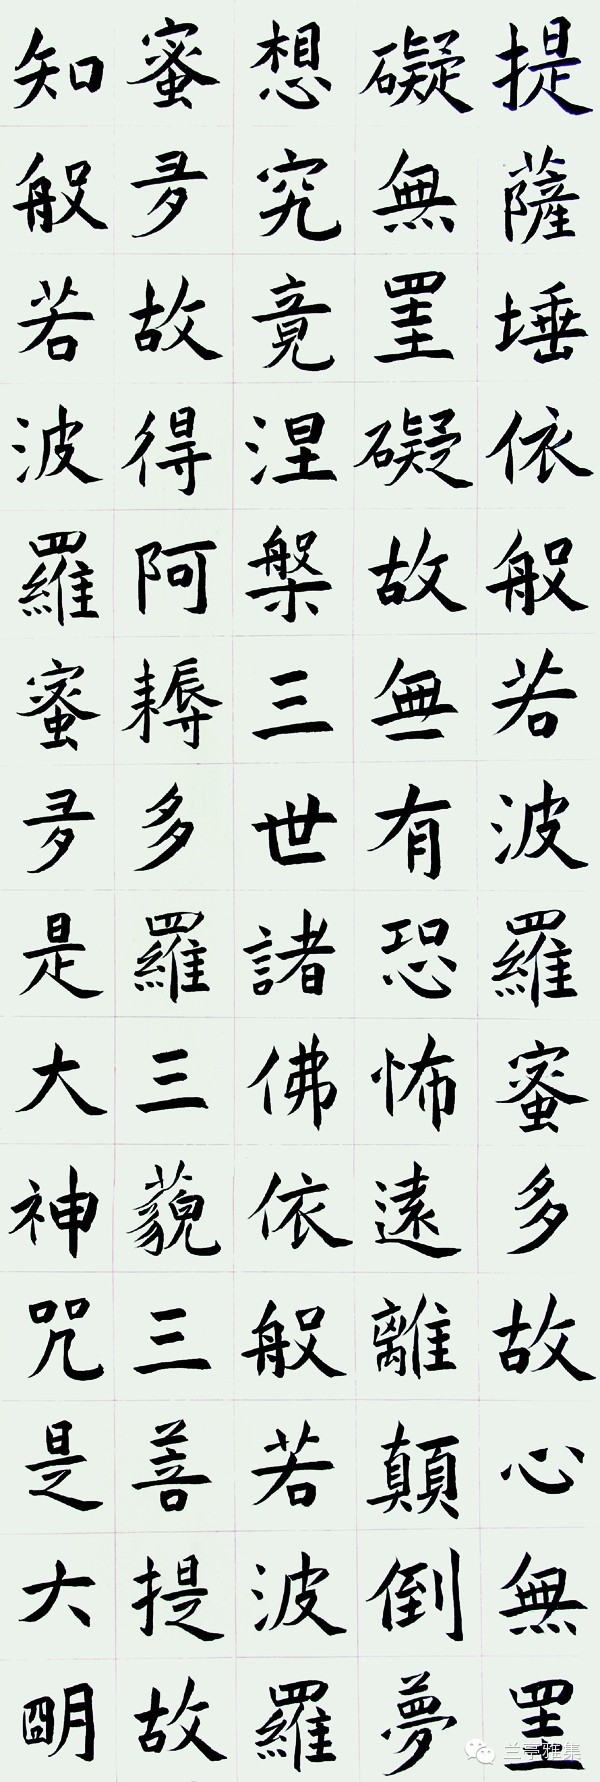 提薩埵依般若波羅蜜多故心無罣
礙無罣礙故無有恐怖遠離顛倒夢
想究竟涅槃三世諸佛依般若波羅
蜜多故得阿耨多羅三藐三菩提故
知般若波羅蜜多是大神咒是大明
兰亭雅集